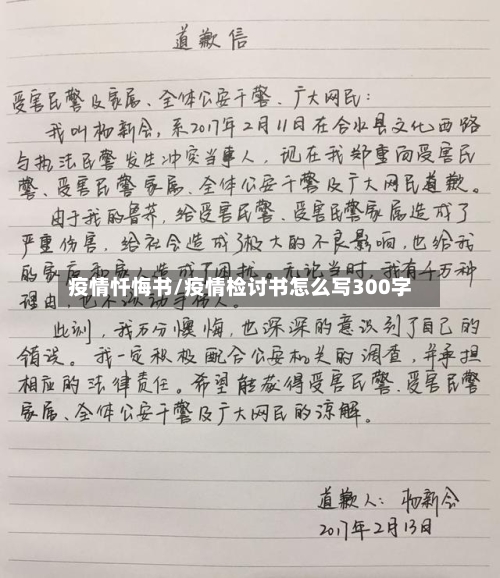 道歉信
受害民警及家属、全体公安干警、广大网民:
我叫杨新会,系2017年2月11日在合水县文化西路
与执法民警发生冲突当事人,现在我郑重向受害民
警、受害民警家属、全体公安干警及广大网民道歉。
由于我的鲁莽,给受害民警、受害民警家属造成了
严重伤害,给社会造成了极大的不良影响,也给我
的家庭和家人造成了困扰。无论当时,我有千万种
疫情忏悔书/疫情检讨书怎么写300字
理由,也不该动手伤人。
此刻,我万分懊悔,也深深的意识到了自己的
错误。我一定积极配合公安机关的调查,并承担
相应的法律责任。希望能获得受害民警、受害民警
家属、全体公安干警及广大网民的谅解。
道歉人:杨新会
2017年2月13日